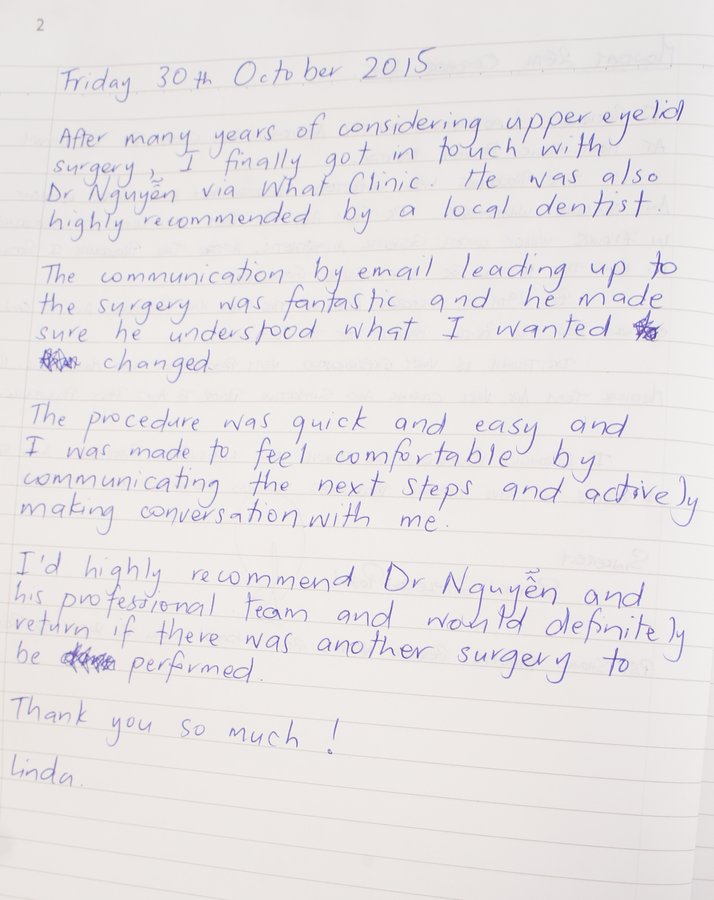 2
Friday 30th October 2015
After many years of considering upper eyelid
surgery, I finally got in touch with
Dr Nguyễn via What Clinic. He was also
highly recommended by a local dentist.
The communication by email leading up to
the surgery was fantastic and he made
sure he understood what I wanted
changed.
The procedure was quick and easy and
I was made to feel comfortable by
communicating the next steps and actively
making conversation with me.
I'd highly recommend Dr Nguyễn and
his professional team and would definitely
return if there was another surgery to
be performed.
Thank you so much!
Linda.